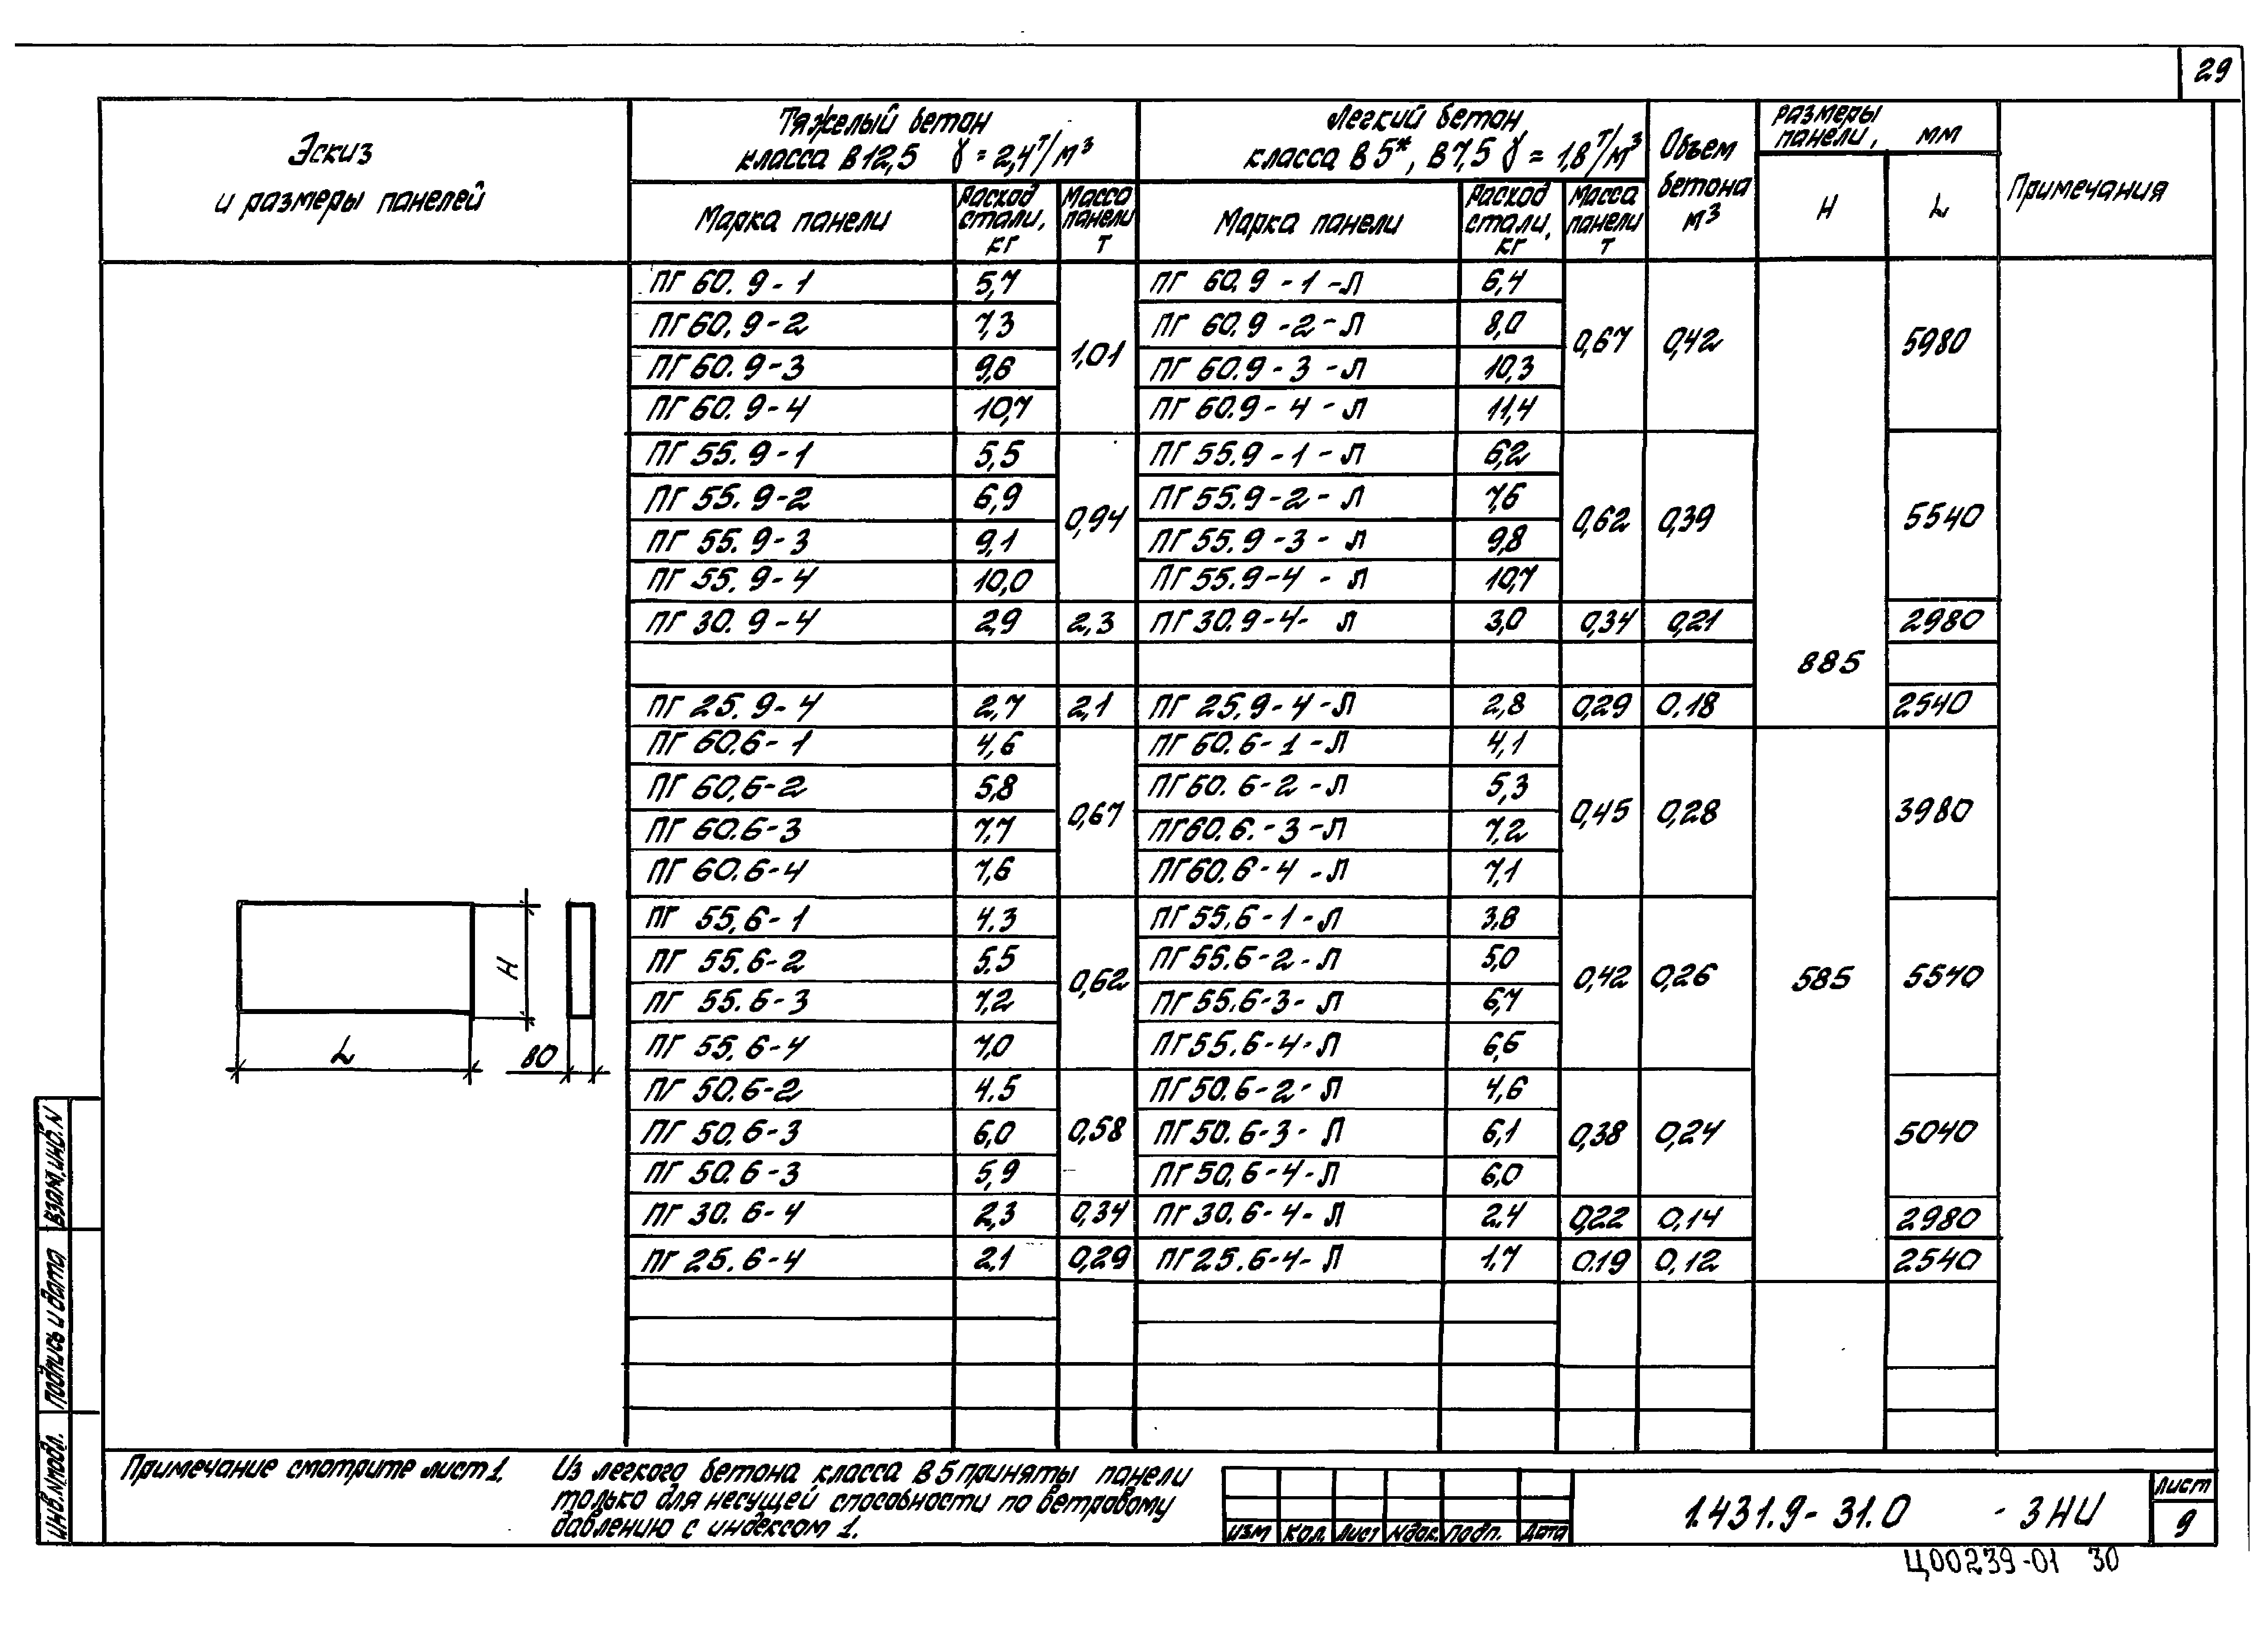 29
Эскиз и размеры панелей
Тяжелый бетон класса В12,5 γ = 2,4 т/м³
Легкий бетон класса В5*, В7,5 γ = 1,8 т/м³
Объем бетона м³
размеры панели, мм
Примечания
Марка панели
Расход стали, кг
Масса панели т
Марка панели
Расход стали, кг
Масса панели т
H
L
ПГ 60. 9-1 5,7 ПГ 60. 9-1-Л 6,4
ПГ 60. 9-2 7,3 ПГ 60. 9-2-Л 8,0
1,01 0,67 0,42 5980
ПГ 60. 9-3 9,6 ПГ 60.9-3-Л 10,3
ПГ 60. 9-4 10,7 ПГ 60.9-4-Л 11,4
ПГ 55. 9-1 5,5 ПГ 55.9-1-Л 6,2
ПГ 55. 9-2 6,9 ПГ 55.9-2-Л 7,6
0,94 0,62 0,39 5540
ПГ 55. 9-3 9,1 ПГ 55.9-3-Л 9,8
ПГ 55. 9-4 10,0 ПГ 55.9-4-Л 10,7
ПГ 30. 9-4 2,9 2,3 ПГ 30.9-4-Л 3,0 0,34 0,21 2980
885
ПГ 25. 9-4 2,7 2,1 ПГ 25.9-4-Л 2,8 0,29 0.18 2540
ПГ 60.6-1 4,6 ПГ 60.6-1-Л 4,1
ПГ 60,6-2 5,8 ПГ 60.6-2-Л 5,3
0,67 0,45 0,28 3980
ПГ 60.6-3 7.7 ПГ 60.6.-3-Л 7,2
ПГ 60.6-4 7,6 ПГ 60.6-4-Л 7,1
ПГ 55,6-1 4.3 ПГ 55.6-1-Л 3,8
ПГ 55.6-2 5.5 ПГ 55.6-2-Л 5,0
0,62 0,42 0,26 585 5540
ПГ 55.6-3 7,2 ПГ 55.6-3-Л 6,7
ПГ 55,6-4 7,0 ПГ 55.6-4-Л 6,5
ПГ 50.6-2 4.5 ПГ 50.6-2-Л 4,6
ПГ 50.6-3 6,0 0,58 ПГ 50.6-3-Л 6,1 0,38 0,24 5040
ПГ 50.6-3 5,9 ПГ 50,6-4-Л 6,0
ПГ 30.6-4 2,3 0,34 ПГ 30.6-4-Л 2.4 0,22 0,14 2980
ПГ 25.6-4 2.1 0,29 ПГ 25.6-4-Л 1,7 0.19 0,12 2540
H
L
80
взам.инв.N
подпись и дата
инв.Nподл.
Примечание смотрите лист 1.
Из легкого бетона класса В5 приняты панели
только для несущей способности по ветровому
давлению с индексом 1.
изм кол. лист Nдок. подп. дата
1.431.9-31.0 -3НИ
лист
9
Ц00239-01 30